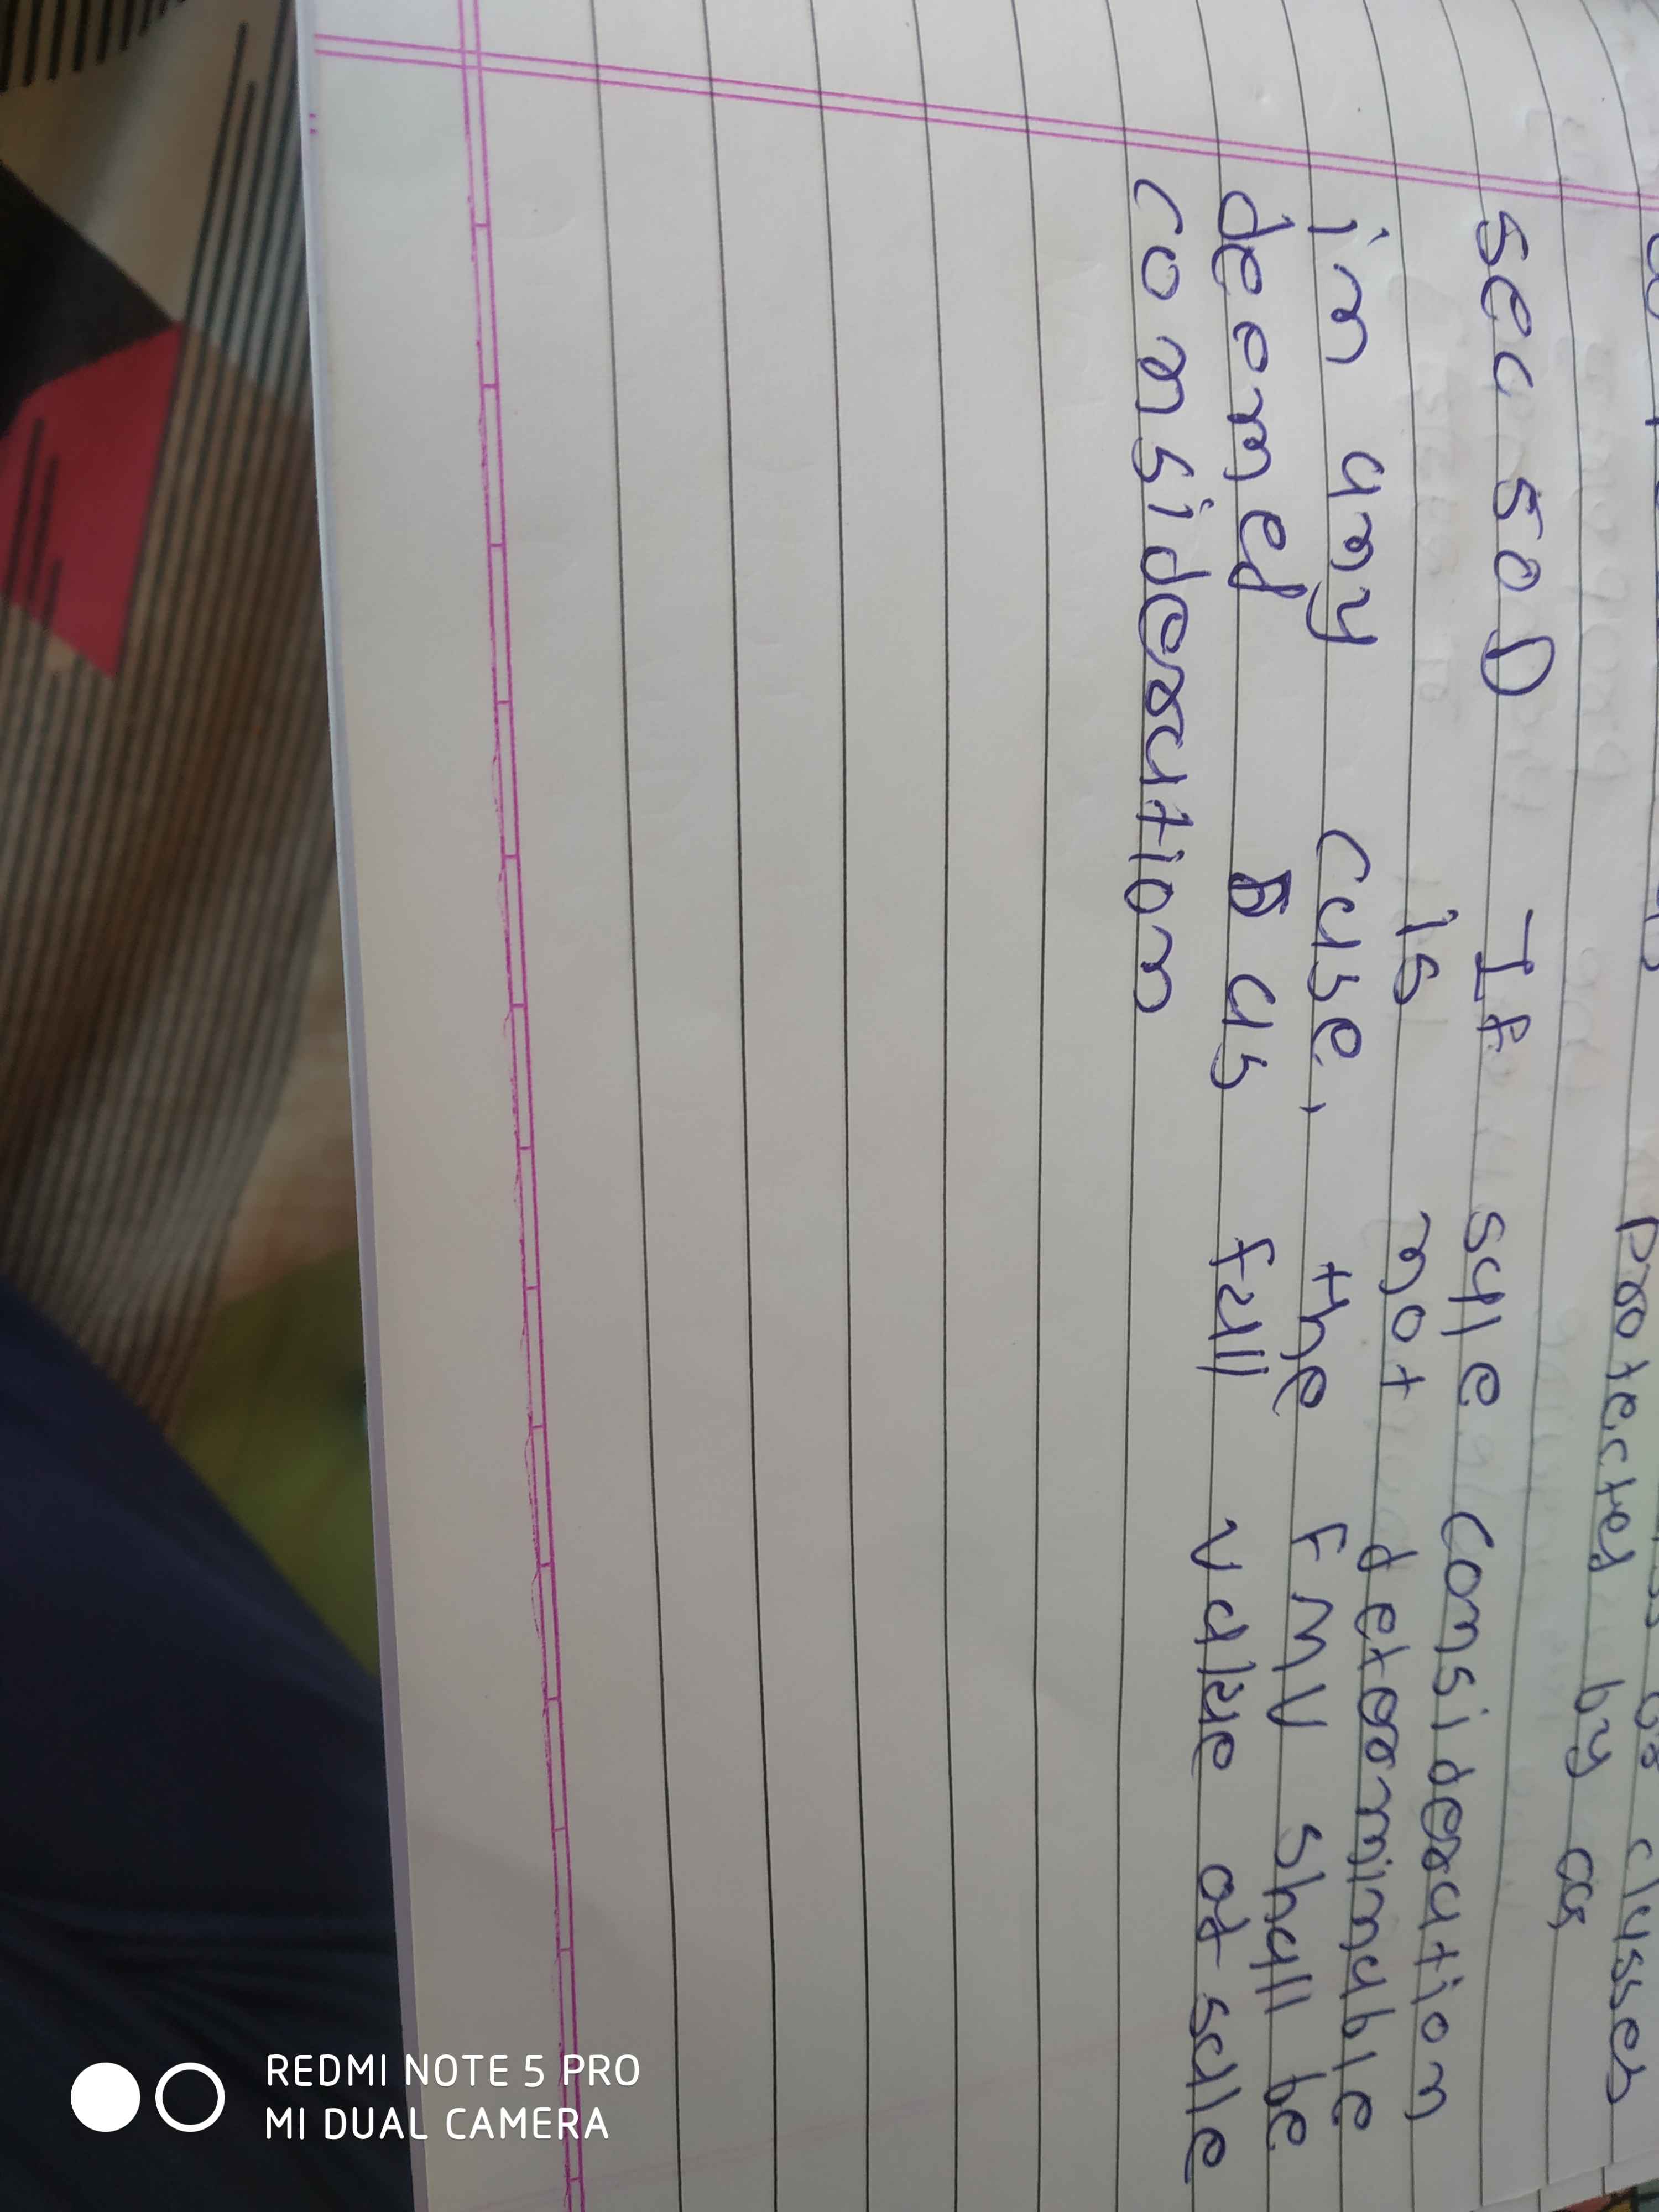 protected by as
sec 50D If sale consideration
is not determinable
in any case, the FMV shall be
deemed as full value of sale
consideration
REDMI NOTE 5 PRO
MI DUAL CAMERA